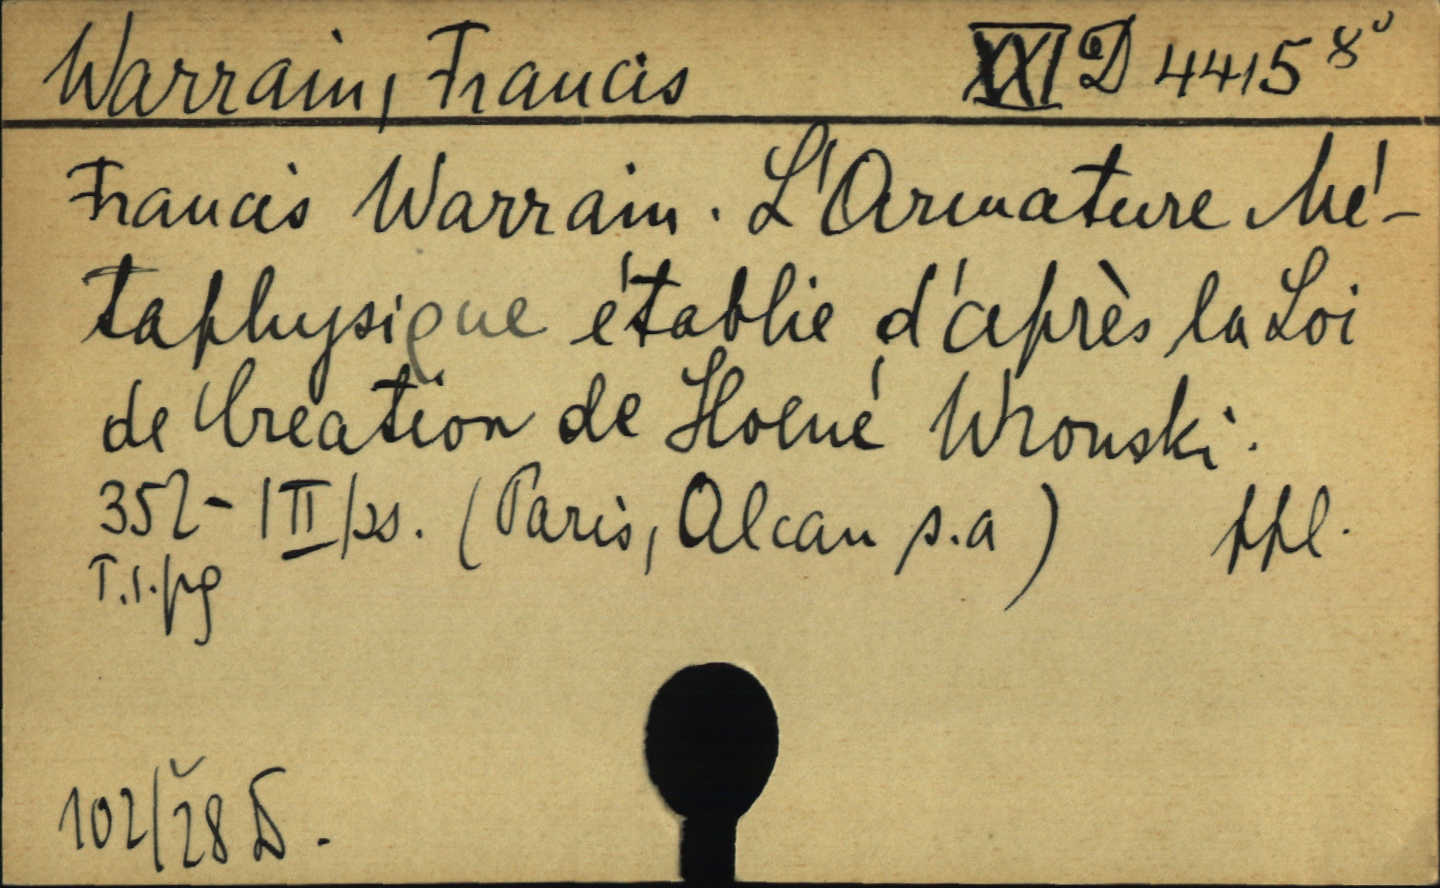 Warrain, Francis XXI D 4415 8°
Francis Warrain. L'Armature Mé-
taphysique établie d'après la Loi
de Création de Hoené Wronski.
352 - |II| ss. (Paris, Alcan s.a)
T.1./pg
102/28 D.